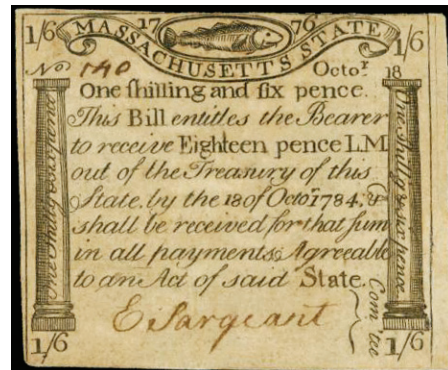 1/6 17 76 1/6
MASSACHUSETTS STATE
No 140 Octor. 18
One ſhilling and ſix pence.
This Bill entitles the Bearer
to receive Eighteen pence LM
out of the Treasury of this
State, by the 18 of Octor. 1784, &
shall be received for that ſum
in all payments Agreeable
to an Act of said State.
E Sargeant
Com tee
One Shillg & sixpence
One Shillg & sixpence.
1/6 1/6